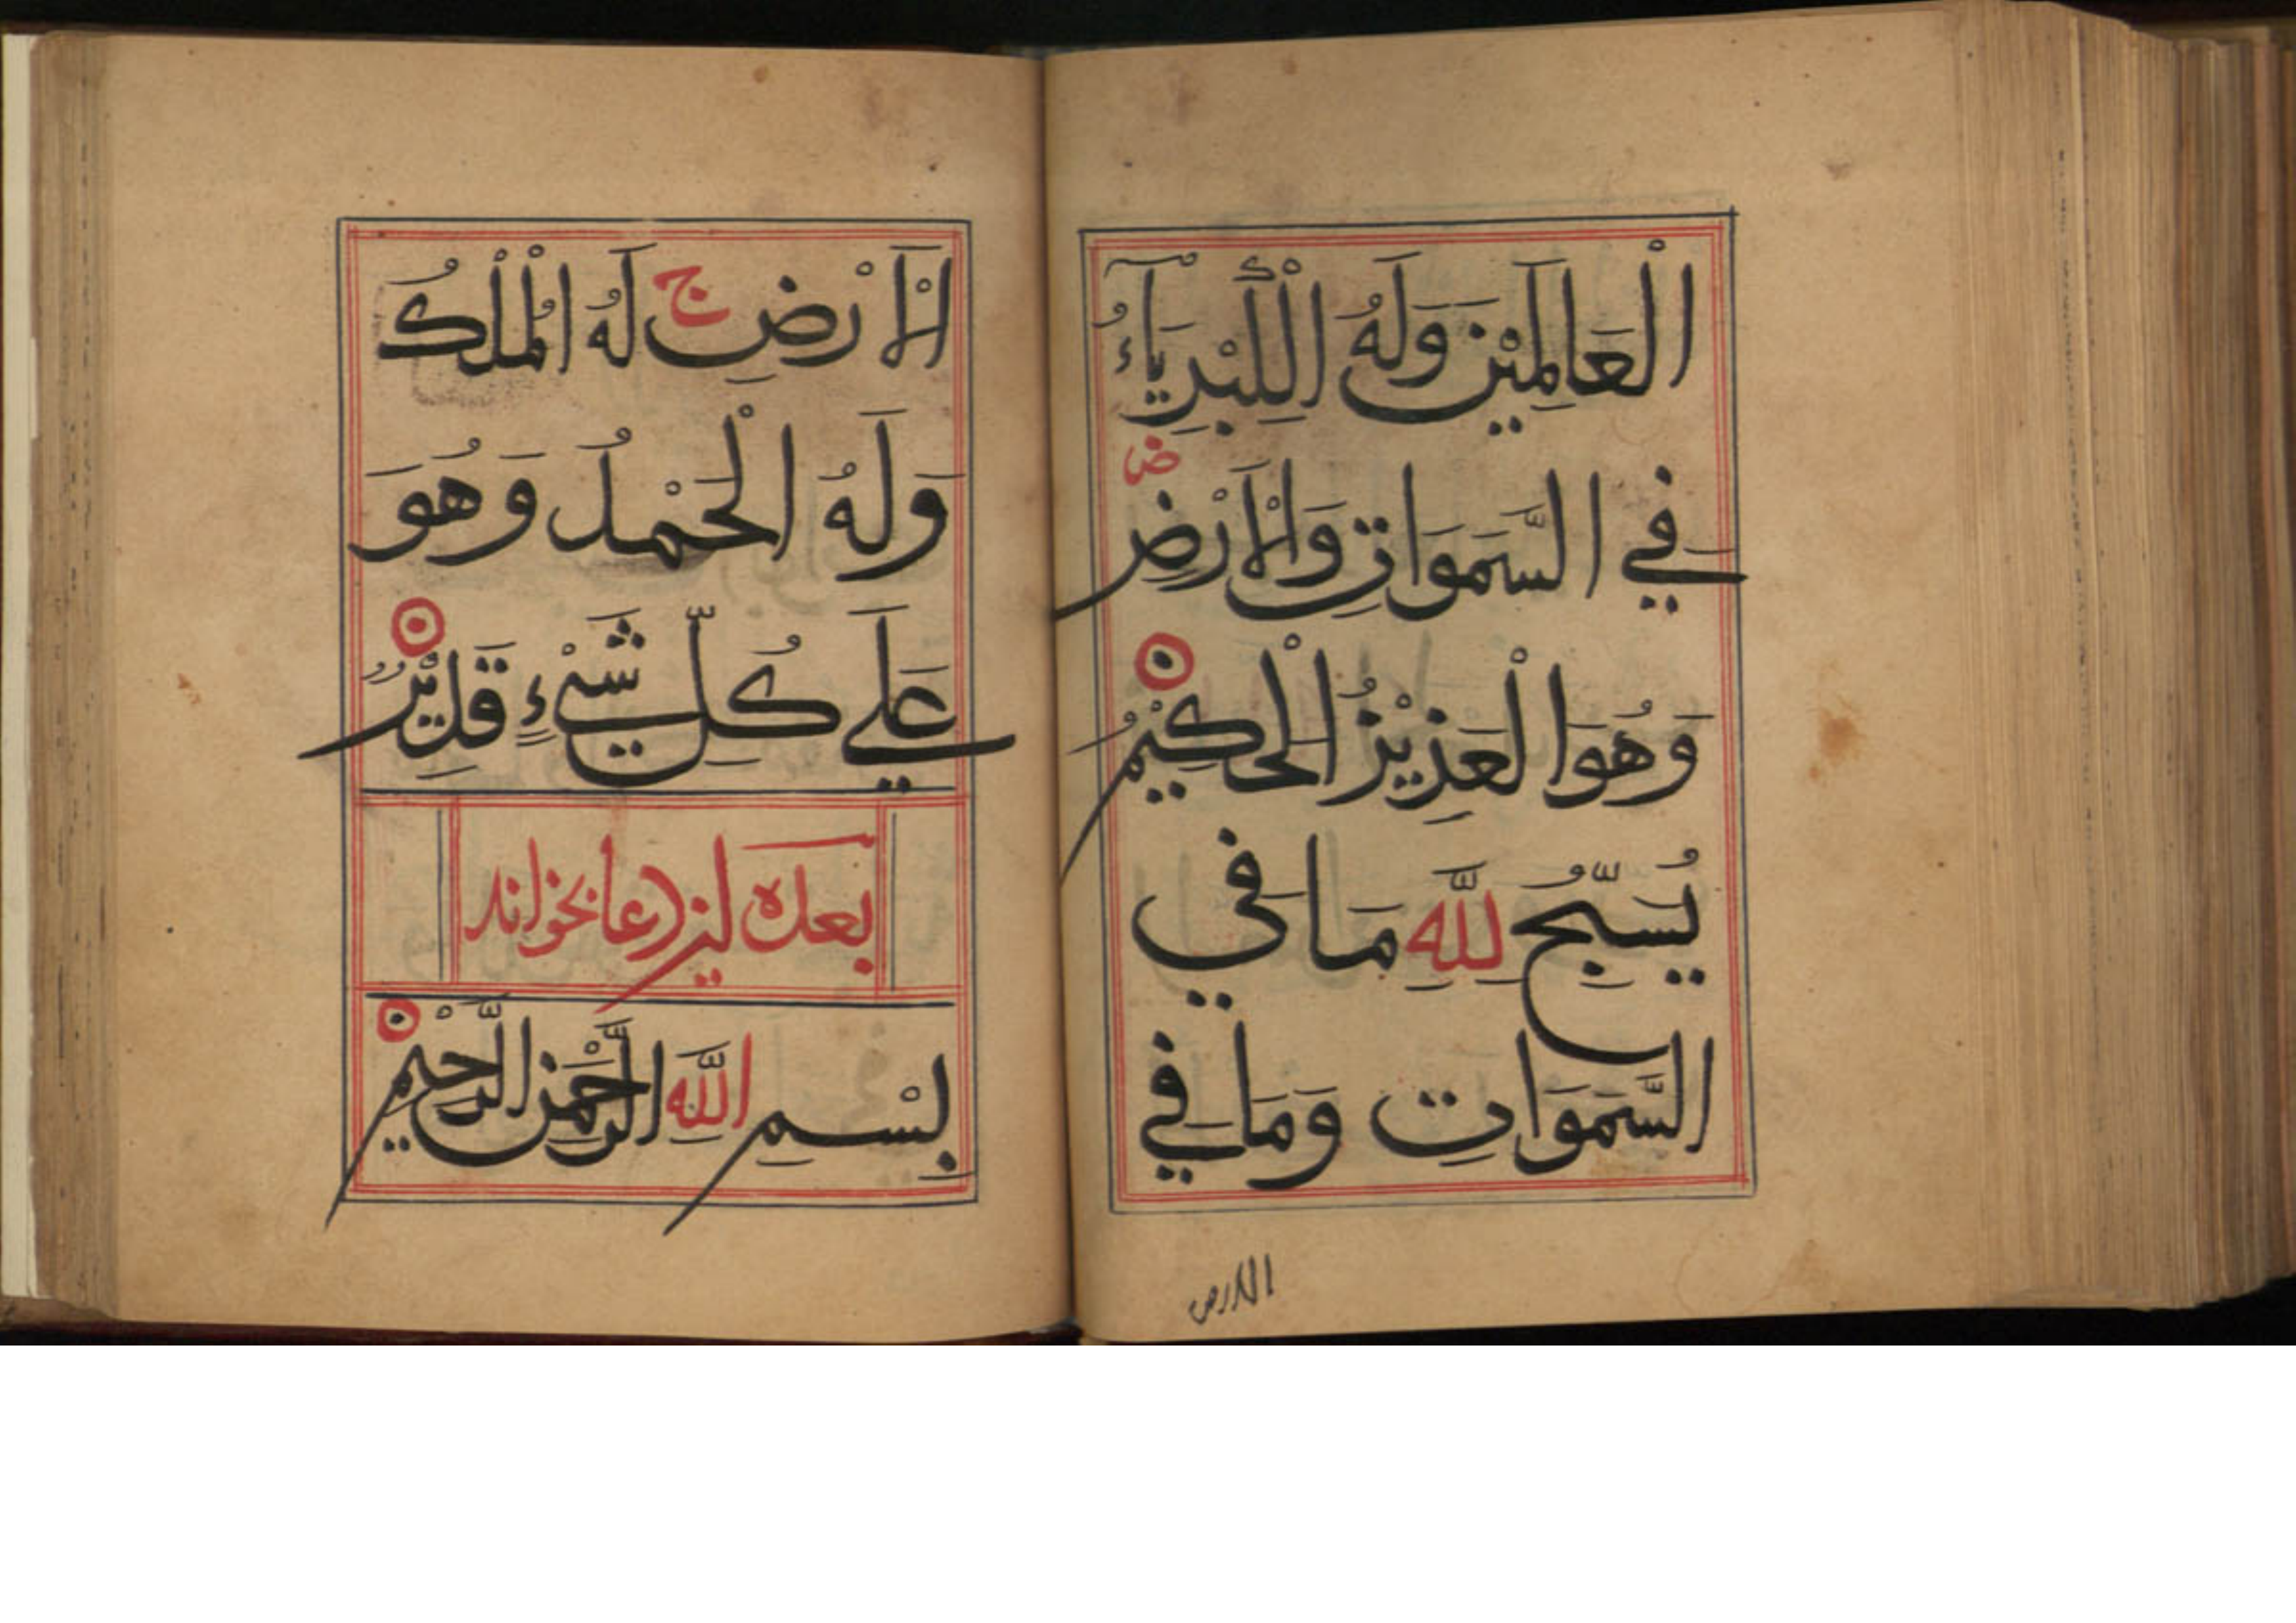 الْعَالَمِيْنَ وَلَهُ الْكِبْرِيَآءُ
فِي السَّمَوَاتِ وَالْاَرْضِ ص
وَهُوَ الْعَزِيْزُ الْحَكِيْمُ
يُسَبِّحُ لِلَّهِ مَا فِي
السَّمَوَاتِ وَمَا فِي
الارض
الْاَرْضِ ج لَهُ الْمُلْكُ
وَلَهُ الْحَمْدُ وَهُوَ
عَلَي كُلِّ شَيْءٍ قَدِيْرٌ
بعده این دعا بخواند
بِسْمِ اللَّهِ الرَّحْمَنِ الرَّحِيْمِ